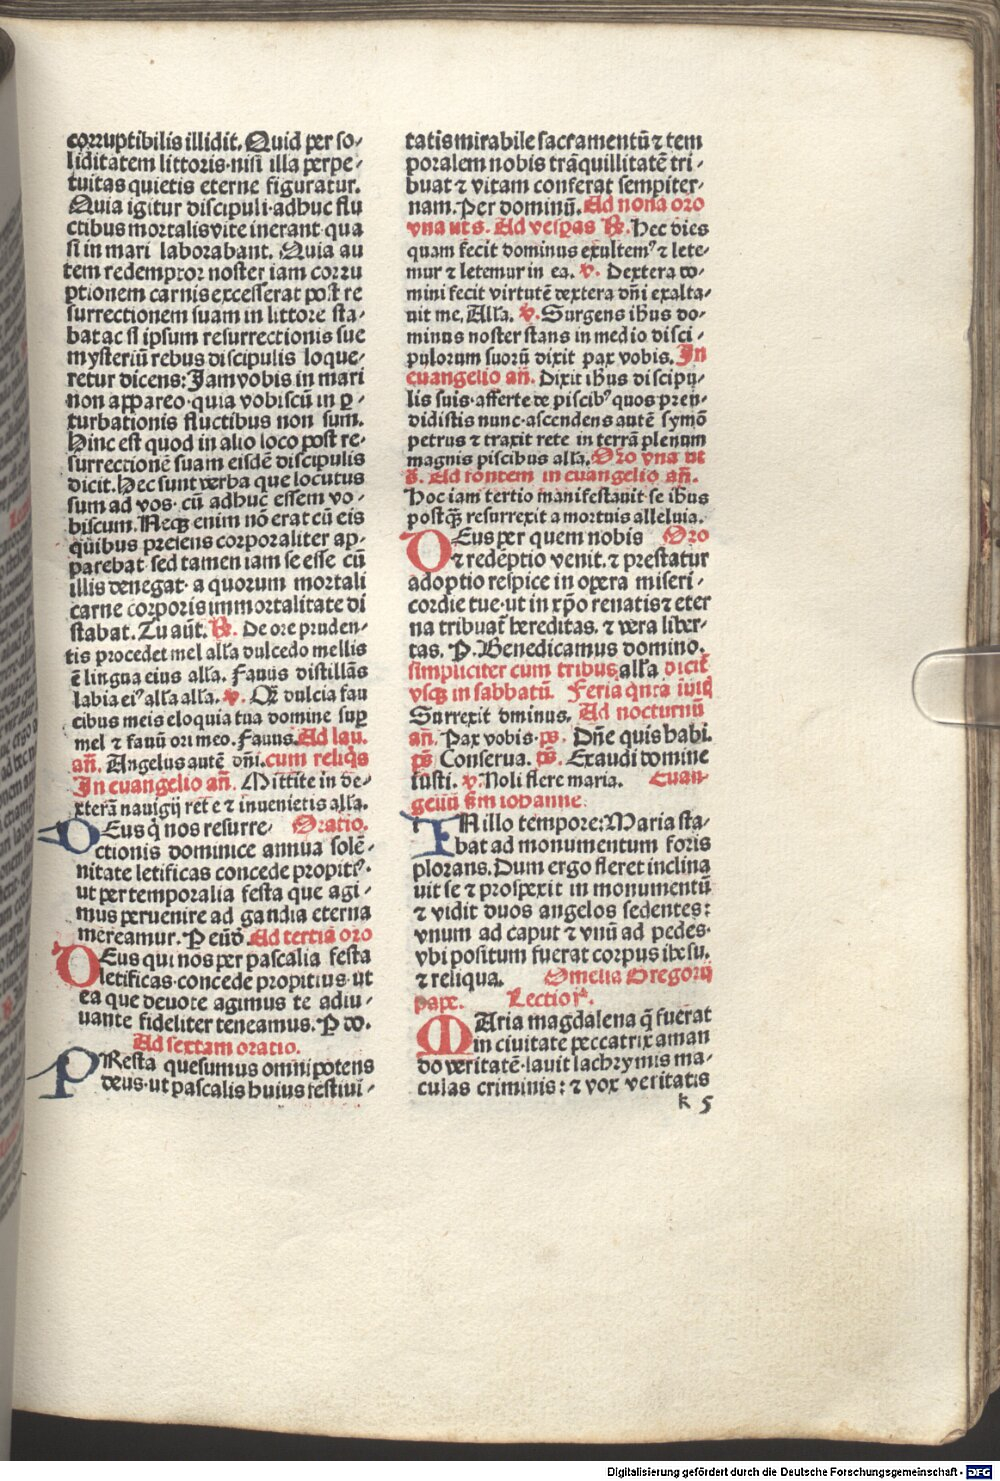 corruptibilis illidit. Quid per so⸗
liditatem littoris·nisi illa perpe⸗
tuitas quietis eterne figuratur.
Quia igitur discipuli·adhuc flu
ctibus mortalis vite inerant·qua
si in mari laborabant. Quia au
tem redemptor noster iam corru
ptionem carnis excesserat post re
surrectionem suam in littore sta⸗
bat ac si ipsum resurrectionis sue
mysteriū rebus discipulis loque⸗
retur dicens: Jam vobis in mari
non appareo·quia vobiscū in ꝑ⸗
turbationis fluctibus non sum.
Hinc est quod in alio loco post re⸗
surrectionē suam eisdē discipulis
dicit. Hec sunt verba que locutus
sum ad vos·cū adhuc essem vo⸗
biscum. Neqꝫ enim nō erat cū eis
quibus presens corporaliter ap⸗
parebat·sed tamen iam se esse cū
illis denegat·a quorum mortali
carne corporis immortalitate di
stabat. Tu aūt. ℟. De ore pruden⸗
tis procedet mel alľa dulcedo mellis
ē lingua eius alľa. Fauus distillās
labia eiꝰ alľa alľa. ℣. Qꝫ dulcia fau
cibus meis eloquia tua domine suꝑ
mel ⁊ fauū ori meo. Fauus. Ad lau.
añ. Angelus autē dñi. cum reliq̇s
In euangelio añ. Mittite in de⸗
xterā nauigij rete ⁊ inuenietis alľa.
DEus q̇ nos resurre⸗ Oratio.
ctionis dominice annua solē⸗
nitate letificas concede propitiꝰ·
ut per temporalia festa que agi⸗
mus peruenire ad gaudia eterna
mereamur. P eūd. Ad tertiā oro
DEus qui nos per pascalia festa
letificas·concede propitius·ut
ea que deuote agimus te adiu⸗
uante fideliter teneamus. P do.
Ad sextam oratio.
PResta quesumus omnipotens
deus·ut pascalis huius festiui⸗
tatis mirabile sacramentū ⁊ tem
poralem nobis trāquillitatē tri⸗
buat ⁊ vitam conferat sempiter⸗
nam. Per dominū. Ad nona oro
vna ut s. Ad vesꝑas ℟. Hec dies
quam fecit dominus exultemꝰ ⁊ lete⸗
mur ⁊ letemur in ea. ℣. Dextera do⸗
mini fecit virtutē dextera dñi exalta⸗
uit me. Alľa. ℣. Surgens ihūs do⸗
minus noster stans in medio disci⸗
pulorum suorū dixit pax vobis. In
euangelio añ. Dixit ihūs discipu⸗
lis suis·afferte de piscibꝰ quos pren⸗
didistis nunc·ascendens autē symō
petrus ⁊ traxit rete in terrā plenum
magnis piscibus alľa. Oro vna ut
s. Ad fontem in euangelio añ.
Hoc iam tertio manifestauit se ihūs
postq̄ꝫ resurrexit a mortuis alleluia.
DEus per quem nobis Oro
⁊ redēptio venit. ⁊ prestatur
adoptio respice in opera miseri⸗
cordie tue·ut in xp̄o renatis ⁊ eter
na tribuat̄ hereditas. ⁊ vera liber⸗
tas. P. Benedicamus domino.
simpliciter cum tribus alľa dicit̄
vsqꝫ in sabbatū. Feria qnta iuit̄
Surrexit dminus. Ad nocturnū
añ. Pax vobis·ps. Dñe quis habi.
ps Conserua. ps. Exaudi domine
iusti. ℣. Noli flere maria. Euan⸗
geliū sm̄ iohanne.
IN illo tempore: Maria sta⸗
bat ad monumentum foris
plorans. Dum ergo fleret inclina
uit se ⁊ prospexit in monumentū
⁊ vidit duos angelos sedentes:
vnum ad caput ⁊ vnū ad pedes·
vbi positum fuerat corpus ihesu.
⁊ reliqua. Omelia Gregorij
pape. Lectio j.ᵃ
MAria magdalena q̄ fuerat
in ciuitate peccatrix aman
do veritatē·lauit lachrymis ma⸗
culas criminis: ⁊ vox veritatis
k 5
Digitalisierung gefördert durch die Deutsche Forschungsgemeinschaft - DFG